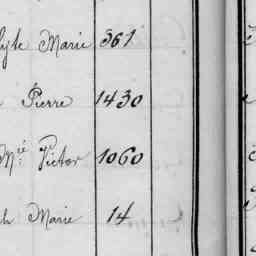 Marie 361
Pierre 1430
Mie Victor 1060
Marie 14